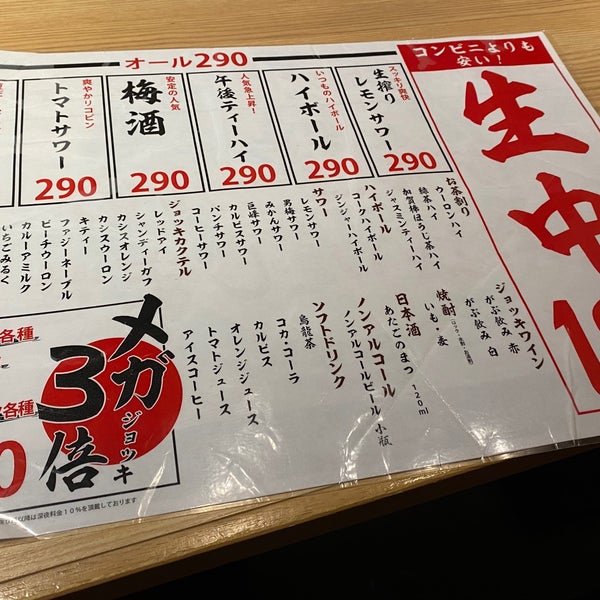 コンビニよりも
安い！
生中
オール290
スッキリ爽快
生搾り
レモンサワー
290
いつものハイボール
ハイボール
290
人気急上昇！
午後ティーハイ
290
安定の人気
梅酒
290
爽やかリコピン
トマトサワー
290
お茶割り
ウーロンハイ
緑茶ハイ
加賀棒ほうじ茶ハイ
ジャスミンティーハイ
ハイボール
コークハイボール
ジンジャーハイボール
サワー
レモンサワー
男梅サワー
みかんサワー
巨峰サワー
カルピスサワー
パンチサワー
コーヒーサワー
ジョッキカクテル
レッドアイ
シャンディーガフ
カシスオレンジ
カシスウーロン
キティー
ファジーネーブル
ピーチウーロン
カルーアミルク
いちごみるく
ジョッキワイン
がぶ飲み 赤
がぶ飲み 白
焼酎
いも・麦
日本酒
あたごのまつ 120ml
ノンアルコール
ノンアルコールビール 小瓶
ソフトドリンク
烏龍茶
コカ・コーラ
カルピス
オレンジジュース
トマトジュース
アイスコーヒー
メガジョッキ
3倍
各種
各種
0
以降は深夜料金10％を頂戴しております